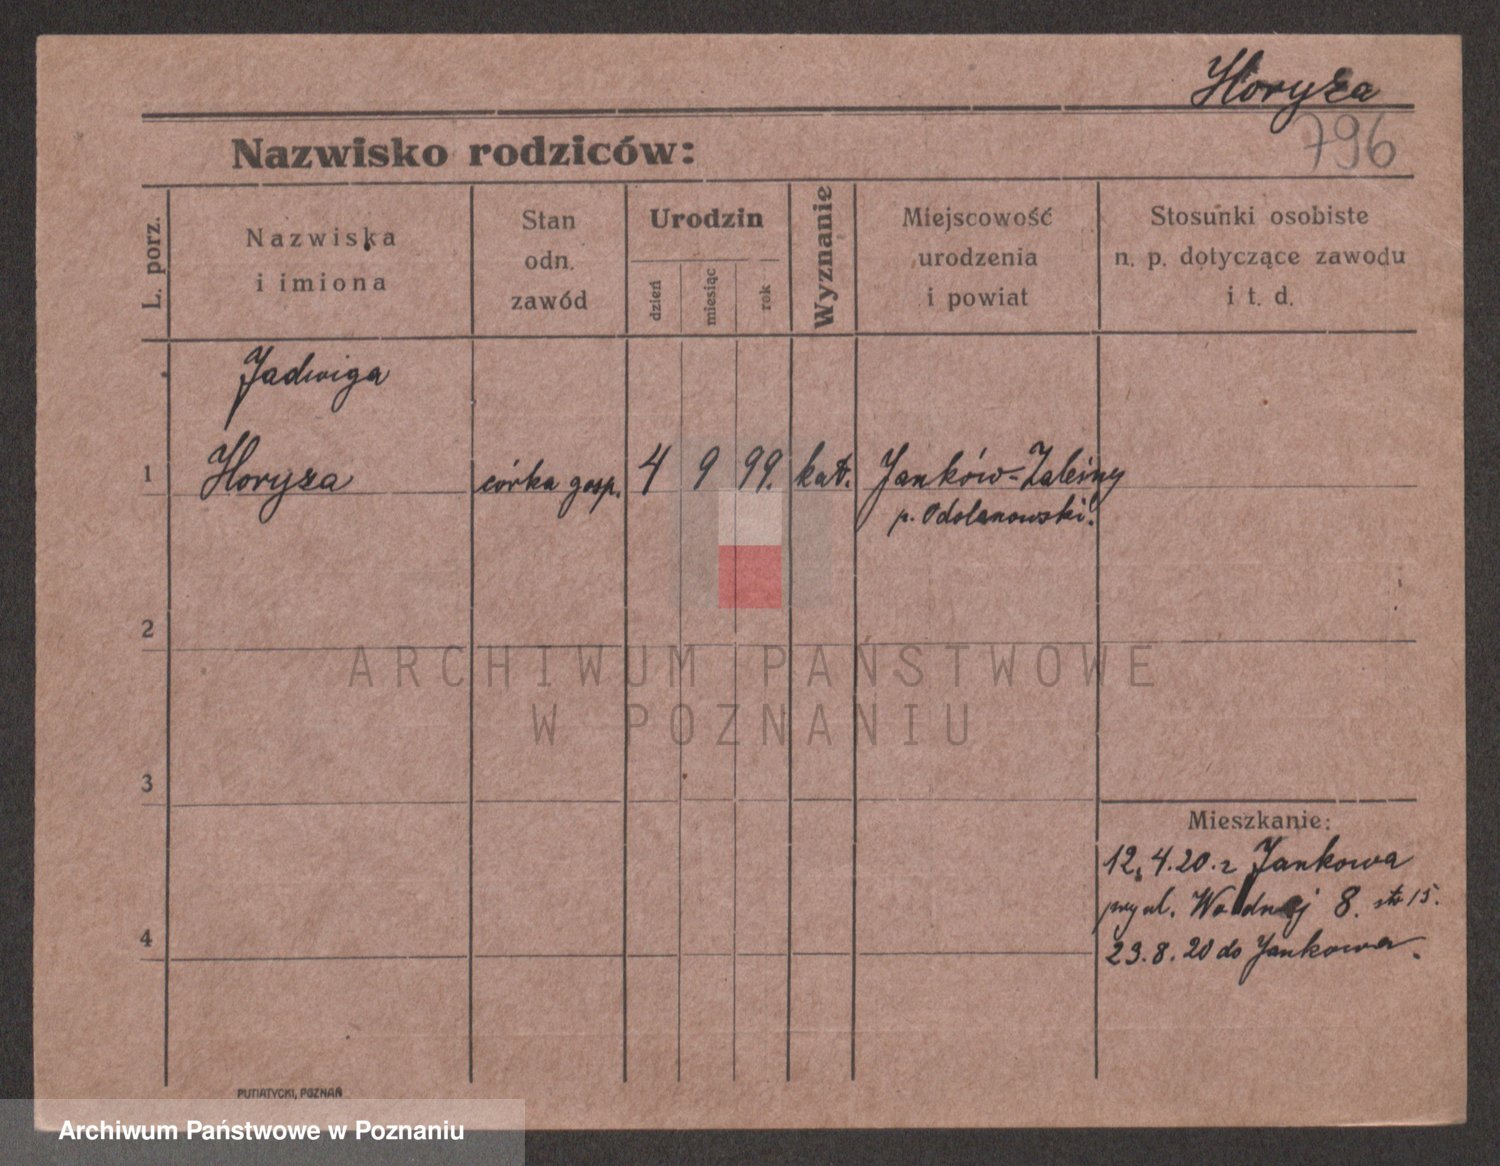 Horyza
796
Nazwisko rodziców:
L. porz.
Nazwiska
i imiona
Stan
odn.
zawód
Urodzin
dzień
miesiąc
rok
Wyznanie
Miejscowość
urodzenia
i powiat
Stosunki osobiste
n. p. dotyczące zawodu
i t. d.
Jadwiga
1 Horyza córka gosp. 4 9 99. kat. Janków-Zaleśny
p. Odolanowski.
2
ARCHIWUM PAŃSTWOWE
W POZNANIU
3
Mieszkanie:
12.4.20. z Jankowa
przy ul. Wodnej 8. 15.
4
23.8.20 do Jankowa.
PUTIATYCKI, POZNAŃ
Archiwum Państwowe w Poznaniu